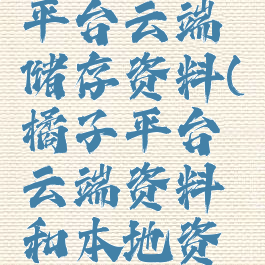 平台云端
储存资料(
橘子平台
云端资料
和本地资